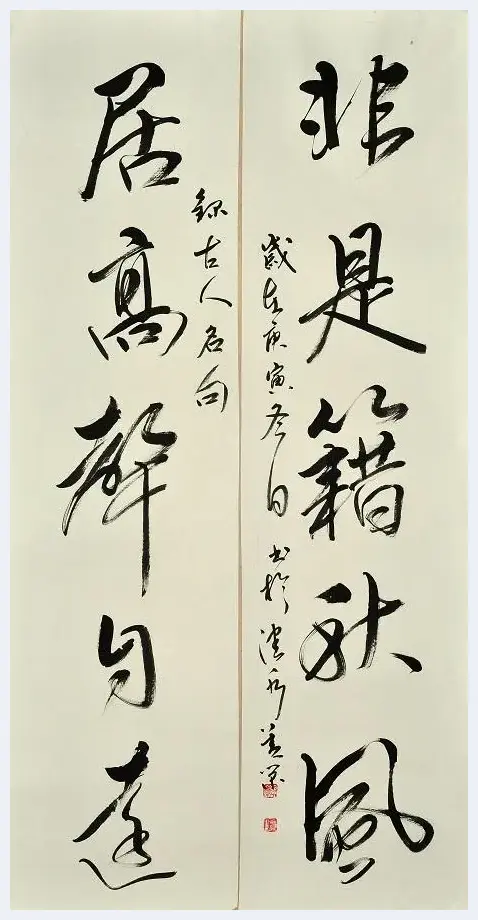 非是籍秋風
歲在庚寅冬日書於
録古人名句
居高聲自遠